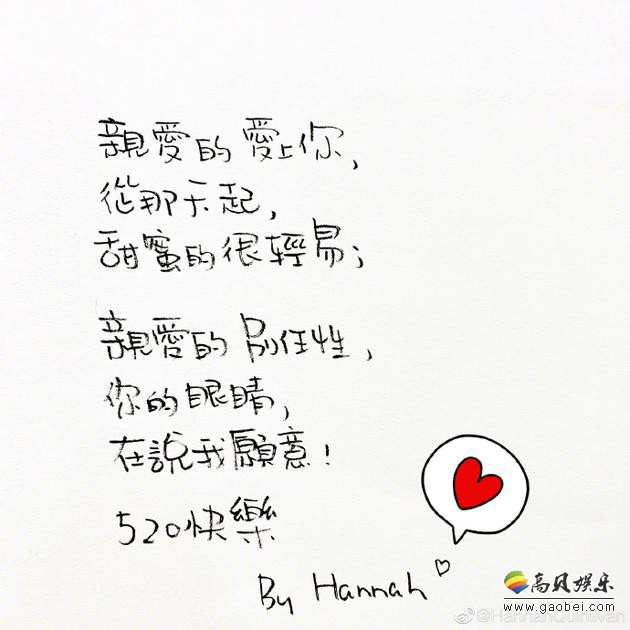 親愛的 愛上你,
從那天起,
甜蜜的很輕易;
親愛的 別任性,
你的眼睛,
在說我願意!
520快樂
By Hannah
高贝娱乐
www.gaobei.com
@HannahQuinlivan